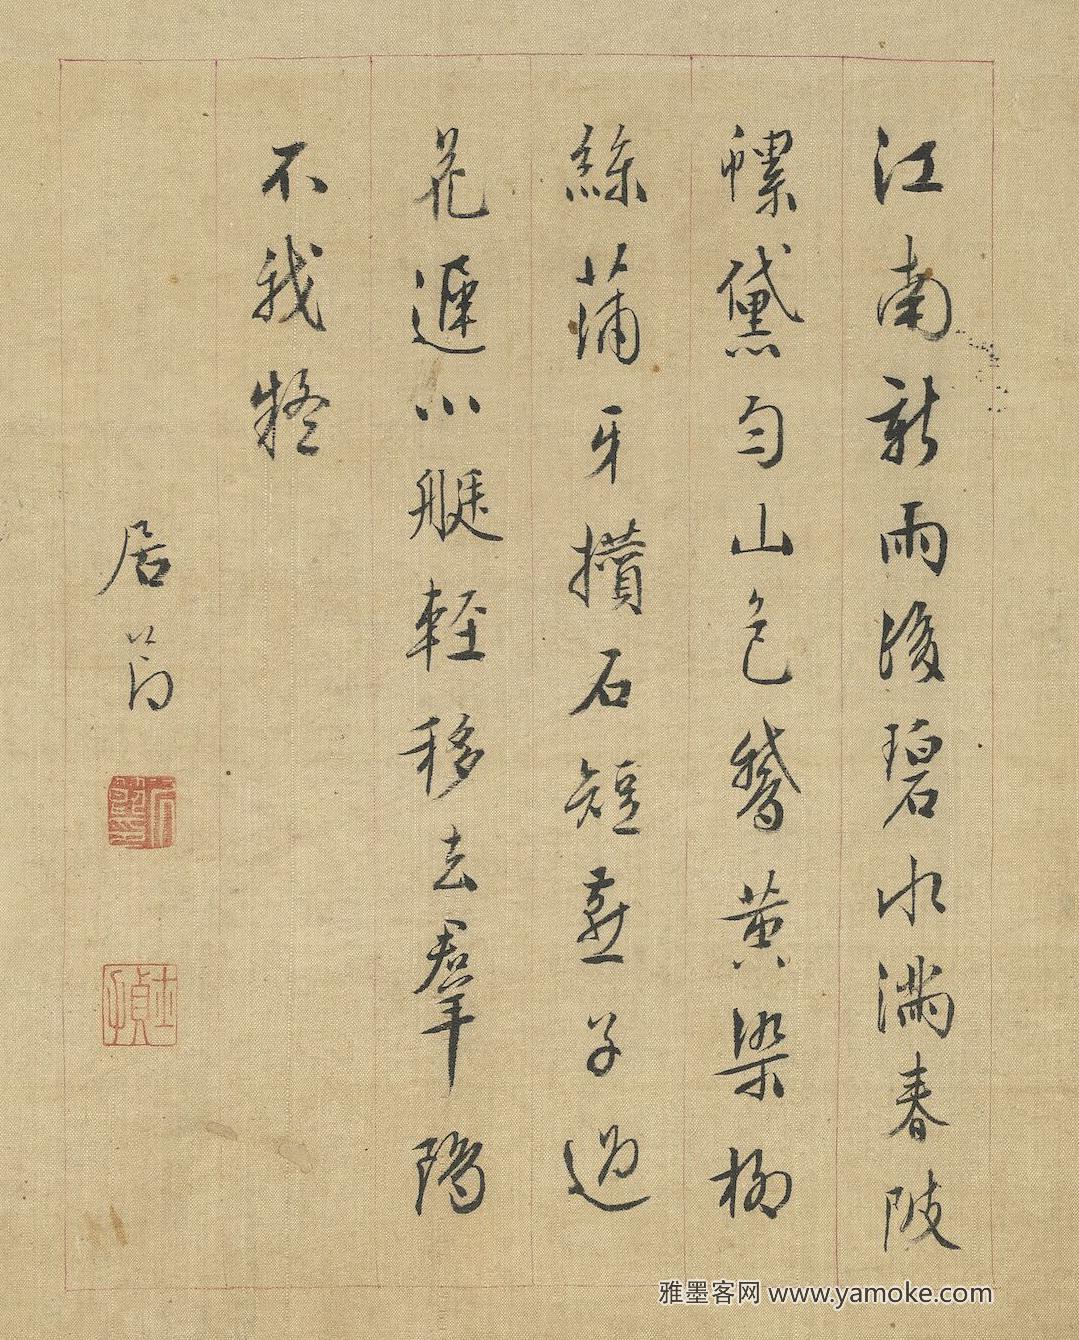 江南新雨後碧水滿春陂
螺黛勻山色鵞黃染柳
絲蒲牙攢石短燕子過
花遲小艇輕移去羣鷗
不我疑
居節
居節
士貞
雅墨客网 www.yamoke.com